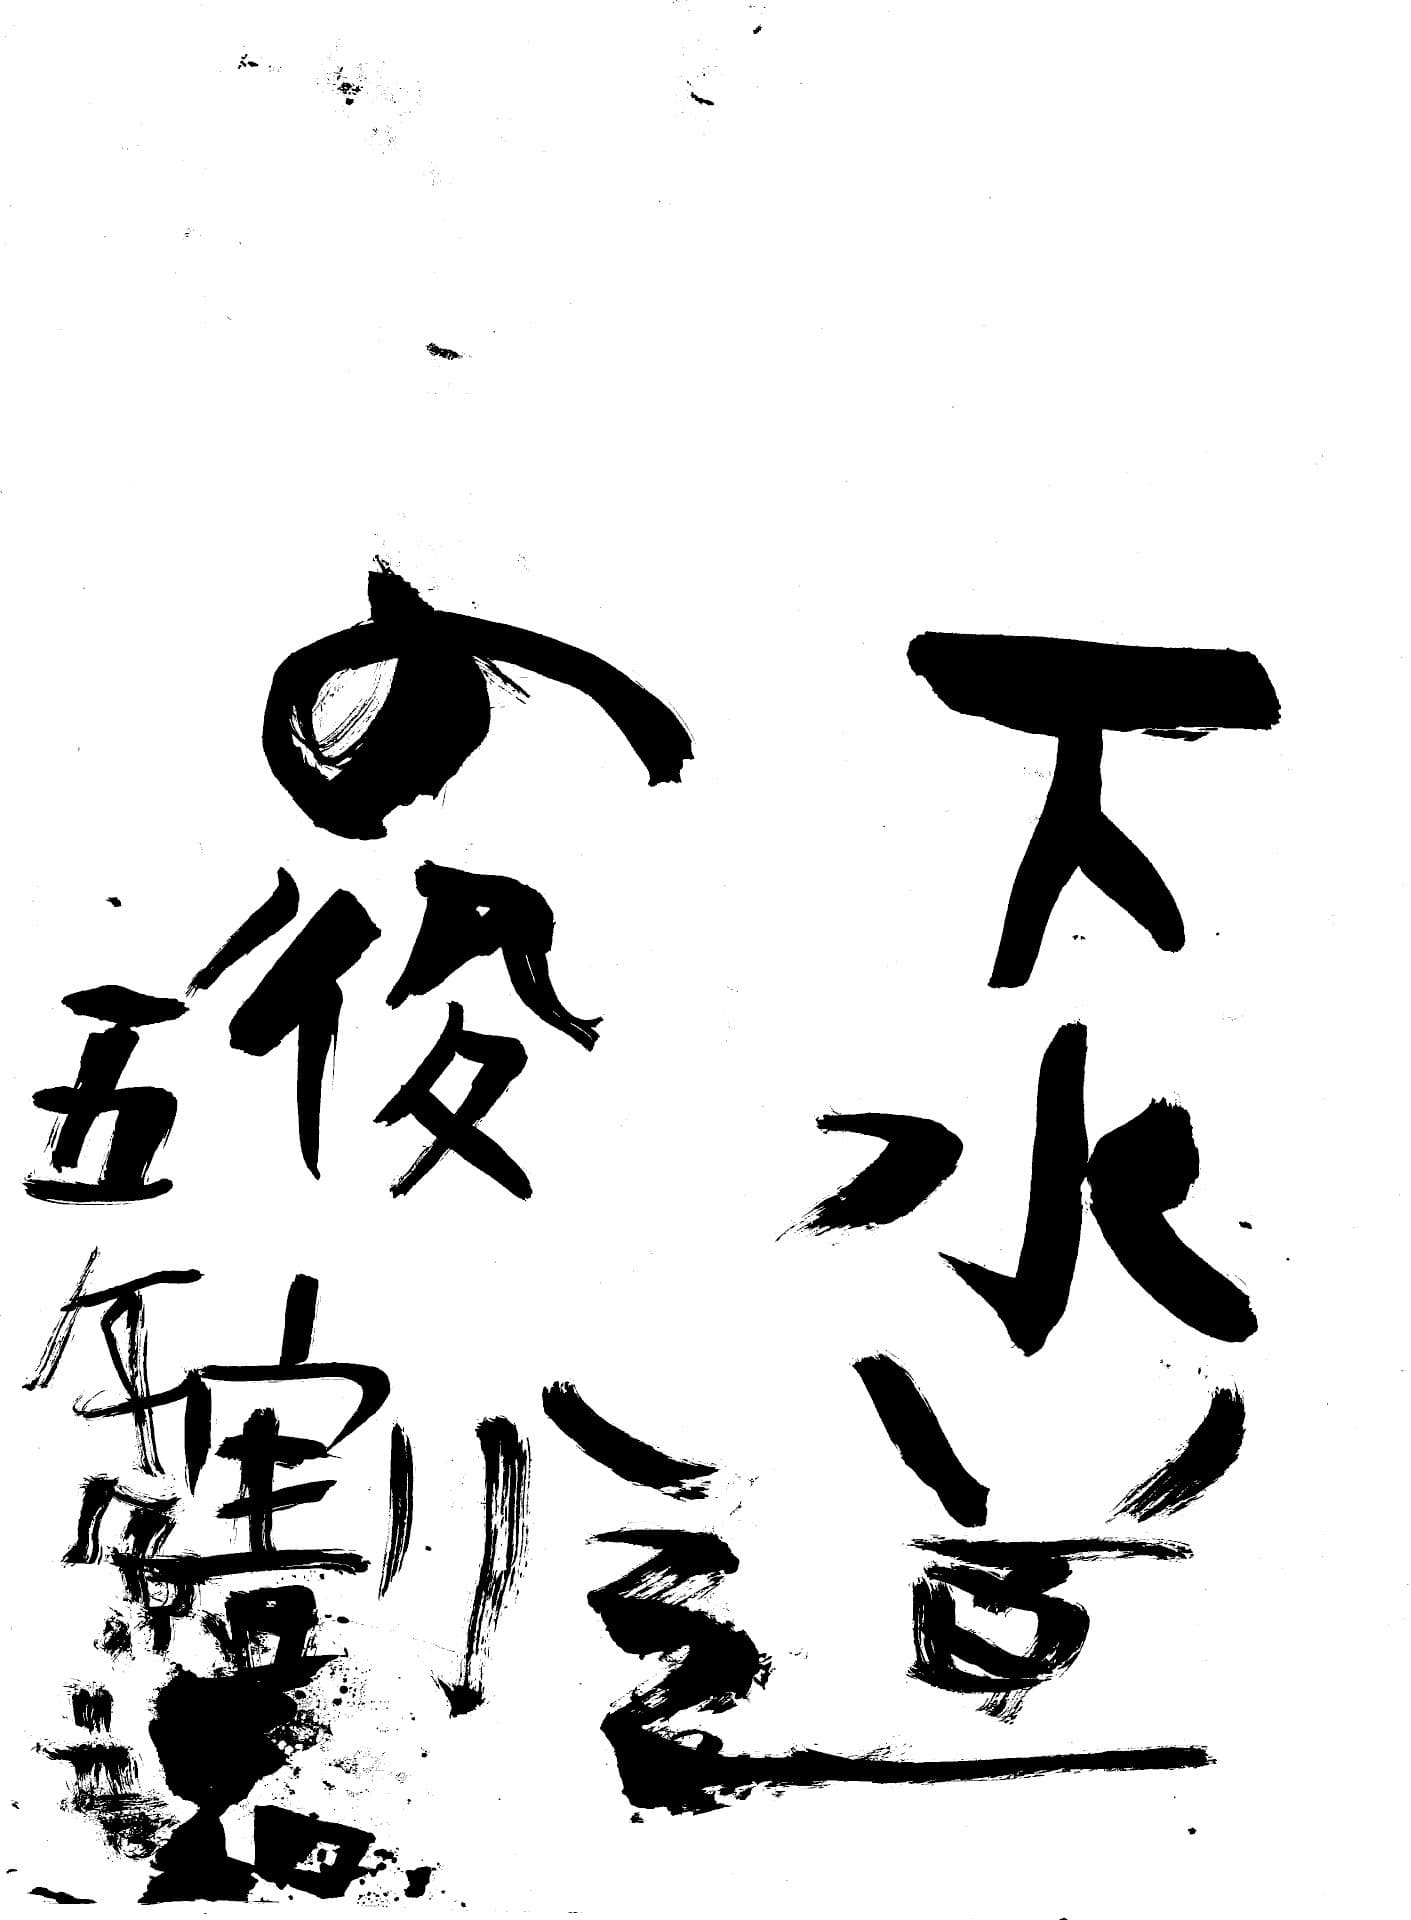 下水道
の役割
五年